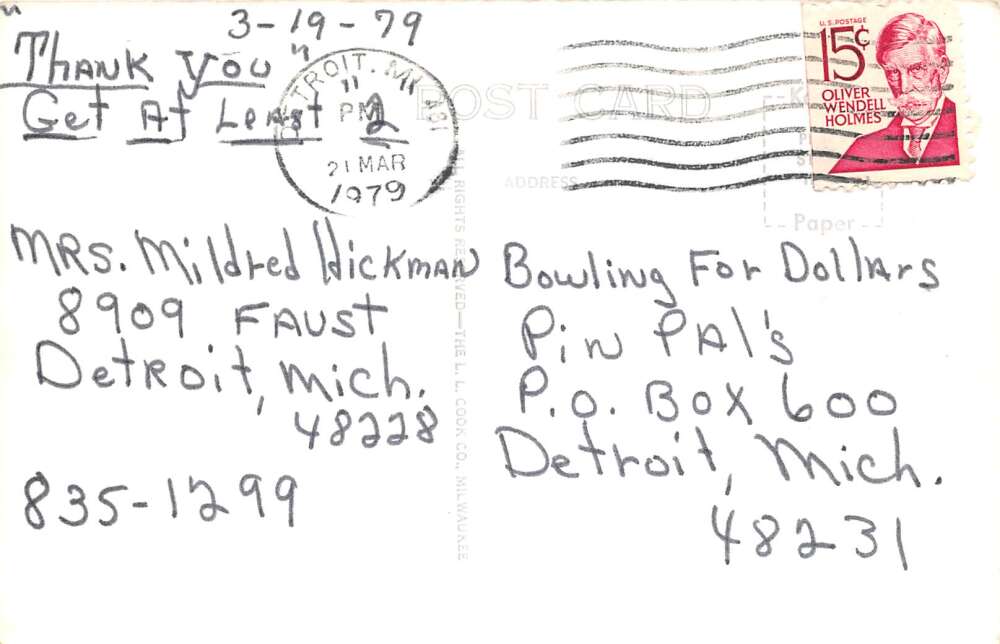 3-19-79
"Thank You"
Get At Least 2
MRS. Mildred Hickman
8909 FAUST
Detroit, Mich.
48228
835-1299
DETROIT, MI 481
PM
21 MAR
1979
POST CARD
ADDRESS
Paper
U.S. POSTAGE
15¢
OLIVER
WENDELL
HOLMES
ALL RIGHTS RESERVED—THE L. L. COOK CO., MILWAUKEE
Bowling For Dollars
Pin PAl's
P.O. BOX 600
Detroit, Mich.
48231